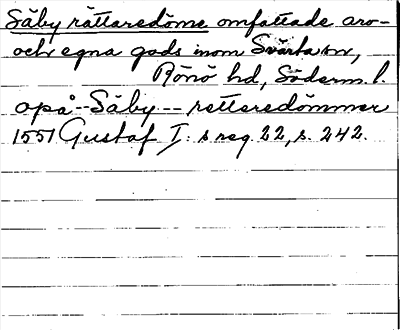 Säby rättaredöme omfattade arv-
och egna gods inom Svärta sn,
Rönö hd, Söderm. l.
opå -- Säby -- retteredömmer
1551 Gustaf I: s reg. 22, s. 242.